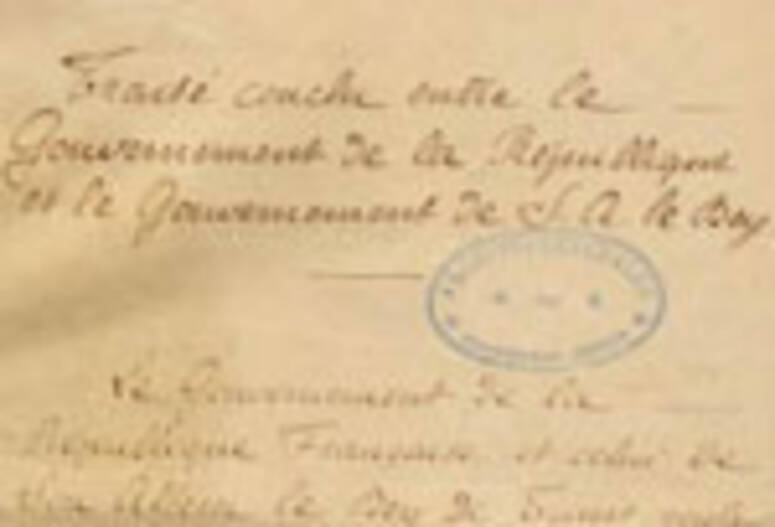 Traité conclu entre le
Gouvernement de la République
et le Gouvernement de S. A le Bey
Le Gouvernement de la
République Française et celui de
Son Altesse le Bey de Tunis